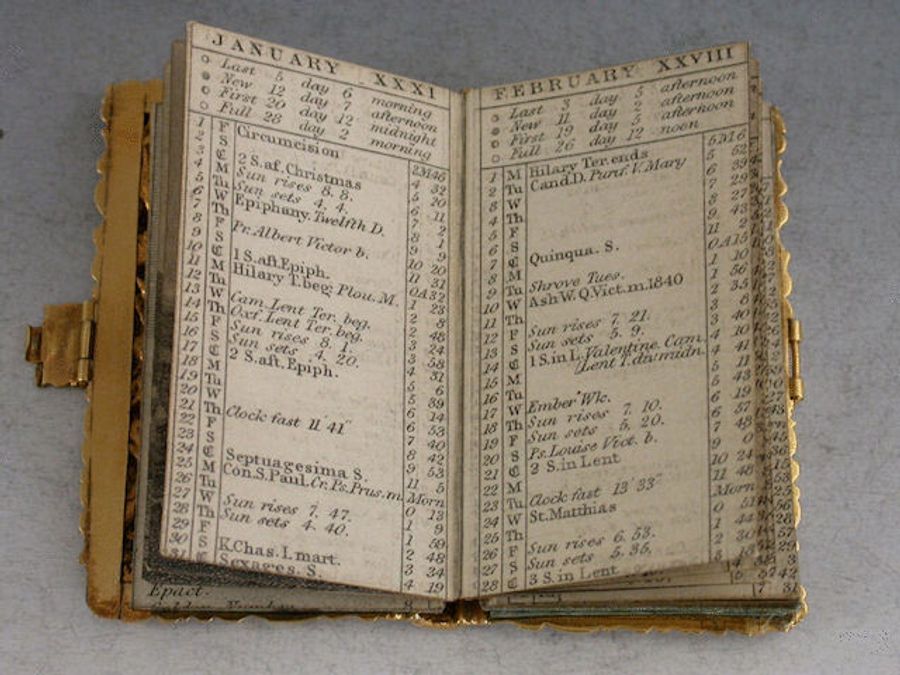 JANUARY XXXI
Last 5 day 6 morning
New 12 day 7 afternoon
First 20 day 12 midnight
Full 28 day 2 morning
1 F Circumcision 2M46
2 S 4 32
3 C 2 S.af. Christmas 5 20
4 M Sun rises 8. 8. 6 11
5 Tu Sun sets 4. 4. 7 2
6 W Epiphany. Twelfth D. 8 1
7 Th 9 9
8 F Pr. Albert Victor b. 10 20
9 S 11 31
10 C 1 S.aft.Epiph. 0A32
11 M Hilary T.beg. Plou. M. 1 23
12 Tu 2 8
13 W Cam. Lent Ter. beg. 2 48
14 Th Oxf. Lent Ter. beg. 3 24
15 F Sun rises 8. 1. 3 58
16 S Sun sets .4. 20. 4 31
17 C 2 S.aft. Epiph. 5 6
18 M 5 39
19 Tu 6 14
20 W 6 53
21 Th Clock fast 11' 41" 7 40
22 F 8 42
23 S 9 53
24 C Septuagesima S. 11 5
25 M Con.S.Paul. Cr.Ps.Prus.m. Morn
26 Tu 0 13
27 W Sun rises 7. 47. 1 9
28 Th Sun sets 4. 40. 1 59
29 F 2 48
30 S K.Chas. I. mart. 3 34
31 C Sexages. S. 4 19
Epact.
FEBRUARY XXVIII
Last 3 day 5 afternoon
New 11 day 2 afternoon
First 19 day 5 afternoon
Full 26 day 12 noon
1 M Hilary Ter. ends 5M6
2 Tu Cand.D. Purif. V. Mary 5 52
3 W 6 39
4 Th 7 29
5 F 8 27
6 S 9 43
7 C Quinqua. S. 11 2
8 M 0A15
9 Tu Shrove Tues. 1 10
10 W Ash W. Q.Vict. m. 1840 1 56
11 Th 2 35
12 F Sun rises 7. 21. 3 8
13 S Sun sets 5. 9. 3 40
14 C 1 S.in L. Valentine. Cam. 4 10
15 M Lent T. div: midn. 4 41
16 Tu 5 11
17 W Ember Wk. 5 43
18 Th Sun rises 7. 10. 6 19
19 F Sun sets 5. 20. 6 57
20 S Ps. Louise Vict. b. 7 48
21 C 2 S. in Lent 9 0
22 M 10 24
23 Tu Clock fast 13' 33" 11 48
24 W St. Matthias Morn
25 Th 0 51
26 F Sun rises 6. 53. 1 44
27 S Sun sets 5. 35. 2 30
28 C 3 S. in Lent 3 13